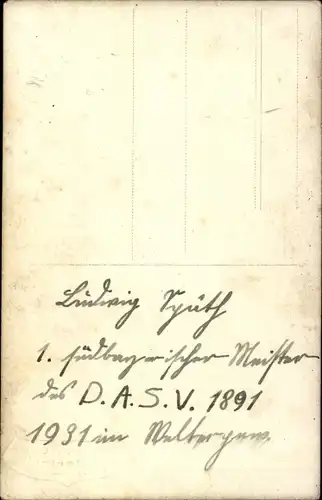 Ludwig Späth
1. südbayrischer Meister
des D. A. S. V. 1891
1931 im Weltergew.